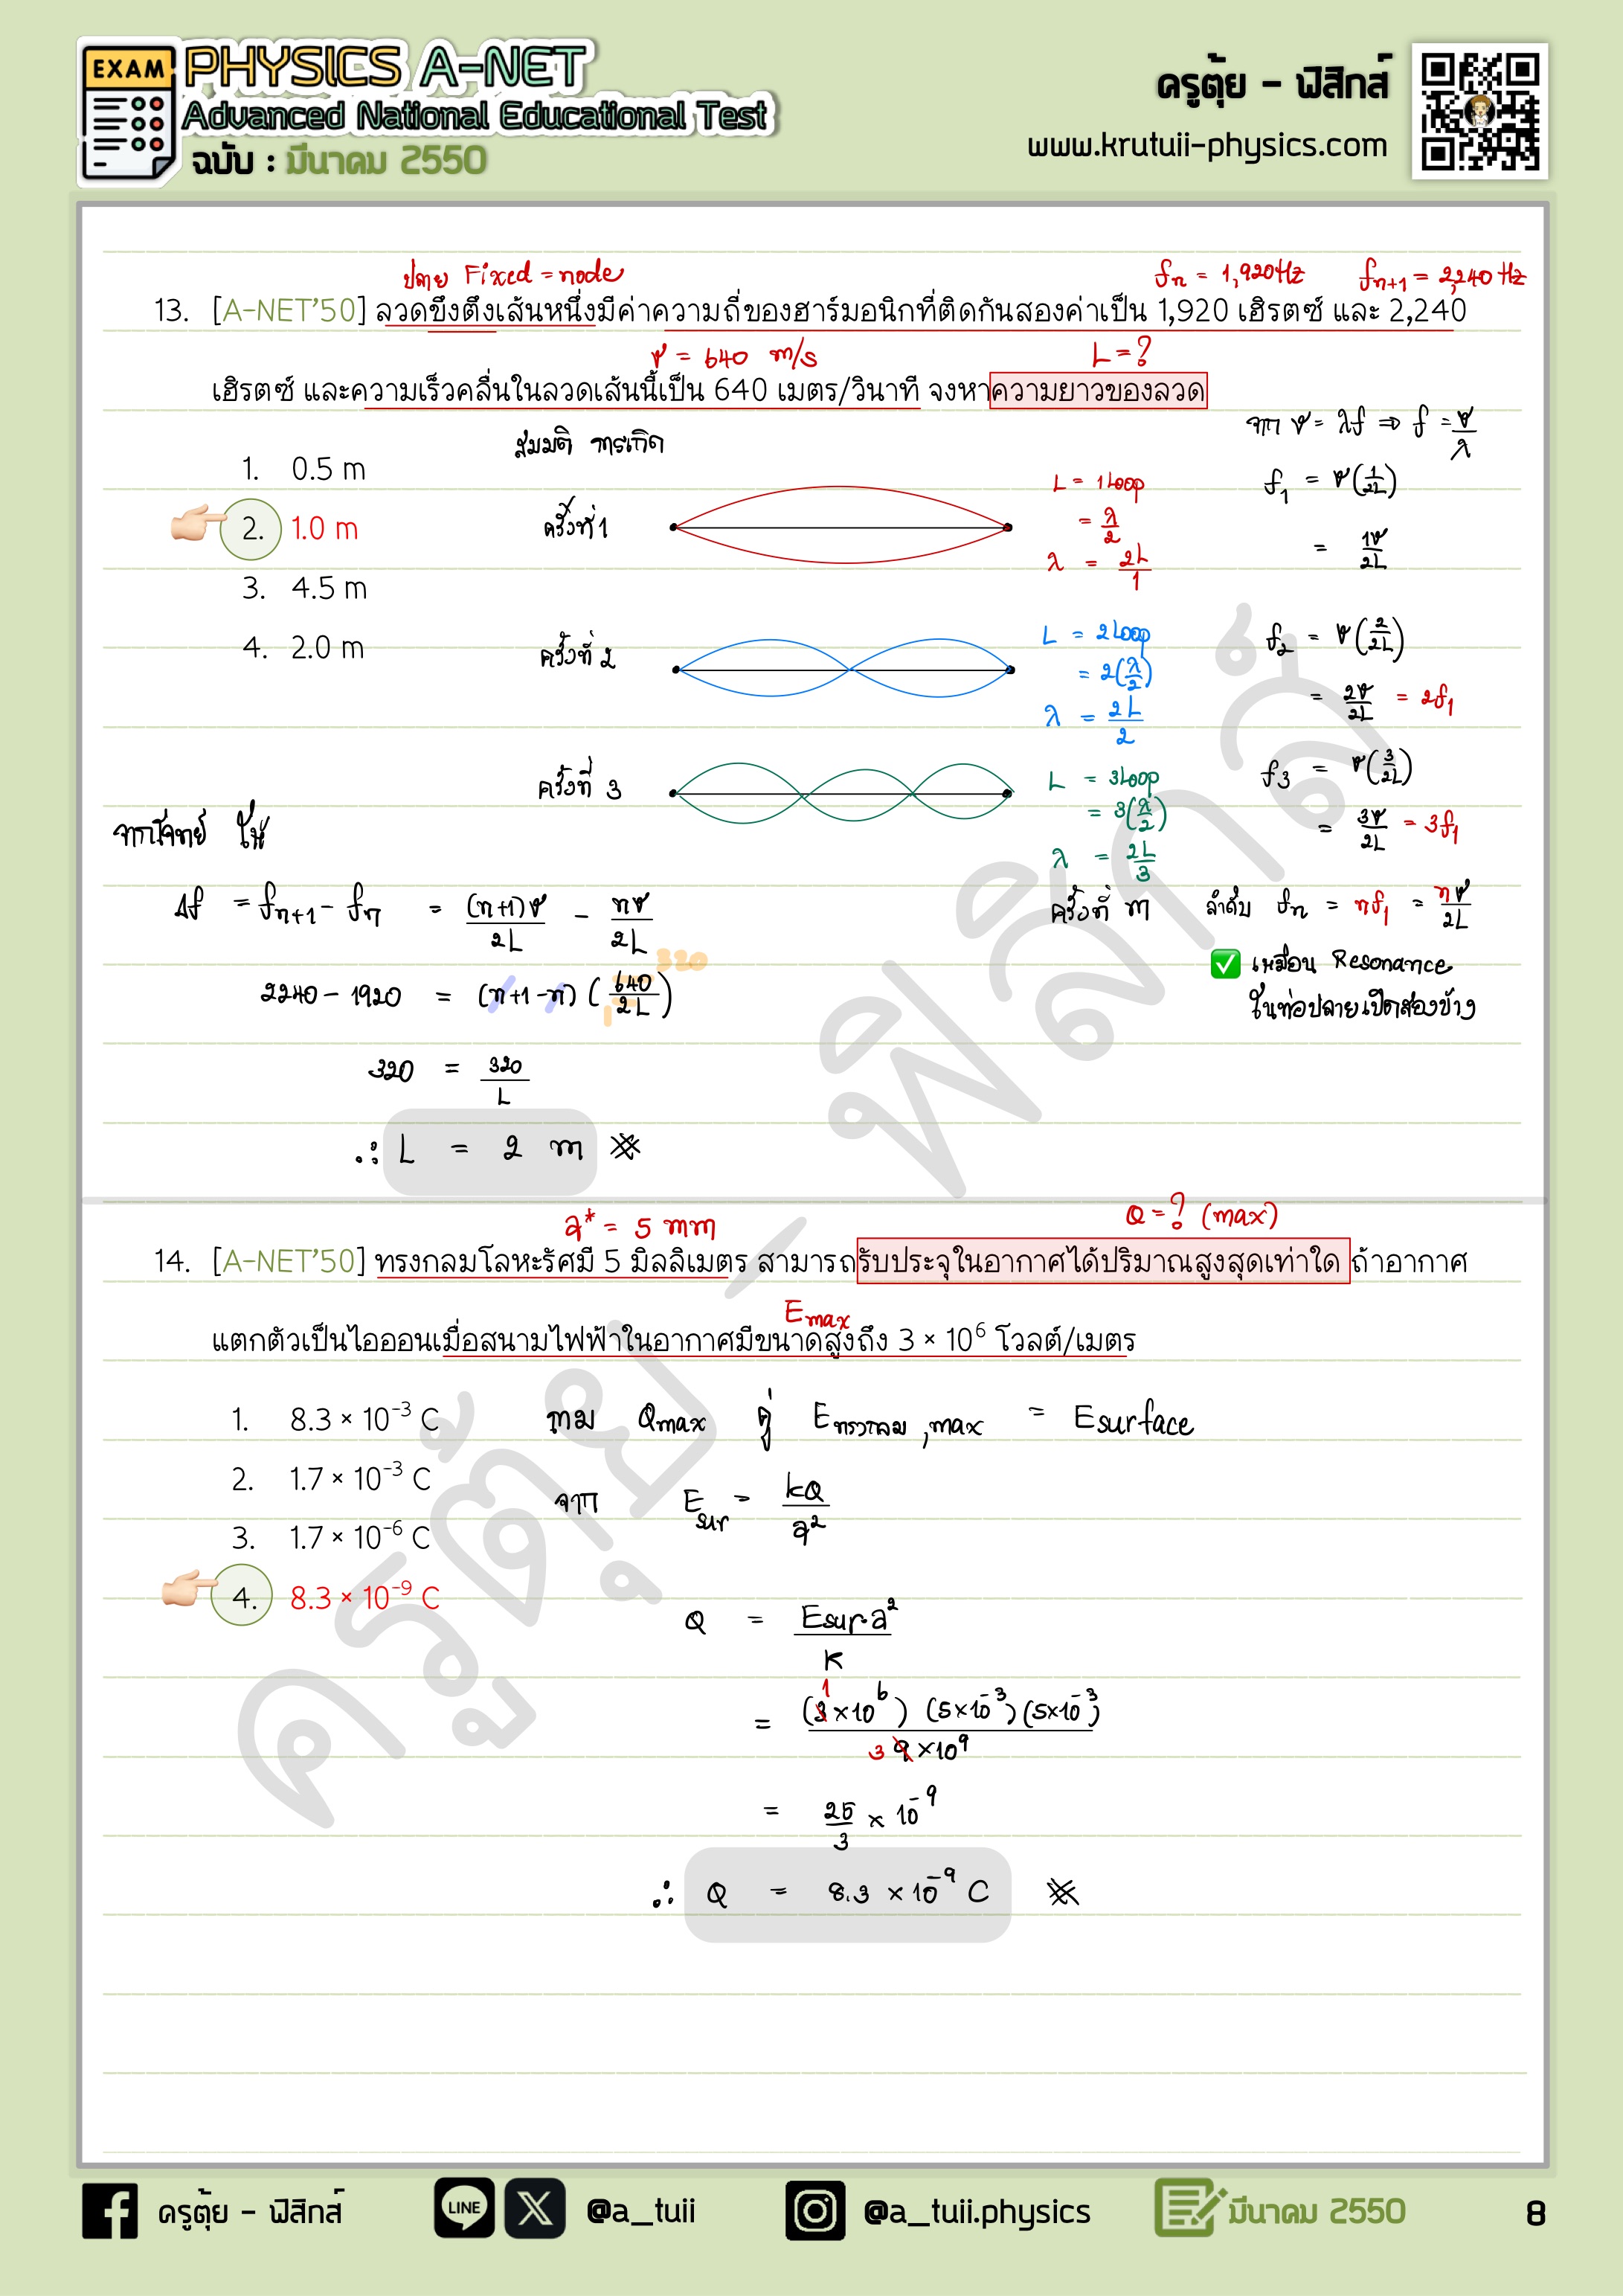 EXAM
PHYSICS A-NET
Advanced National Educational Test
ฉบับ : มีนาคม 2550
ครูตุ้ย - ฟิสิกส์
www.krutuii-physics.com
ปลาย Fixed = node
fn = 1,920 Hz fn+1 = 2,240 Hz
13. [A-NET'50] ลวดขึงตึงเส้นหนึ่งมีค่าความถี่ของฮาร์มอนิกที่ติดกันสองค่าเป็น 1,920 เฮิรตซ์ และ 2,240
v = 640 m/s L = ?
เฮิรตซ์ และความเร็วคลื่นในลวดเส้นนี้เป็น 640 เมตร/วินาที จงหาความยาวของลวด
1. 0.5 m
2. 1.0 m
3. 4.5 m
4. 2.0 m
สมมติ การเกิด
จาก v = λf ⇒ f = v/λ
ครั้งที่ 1
L = 1 Loop
= λ/2
λ = 2L/1
f1 = v(1/2L)
= 1v/2L
ครั้งที่ 2
L = 2 Loop
= 2(λ/2)
λ = 2L/2
f2 = v(2/2L)
= 2v/2L = 2f1
ครั้งที่ 3
L = 3 Loop
= 3(λ/2)
λ = 2L/3
f3 = v(3/2L)
= 3v/2L = 3f1
ครั้งที่ n ลำดับ fn = nf1 = nv/2L
✅ เหมือน Resonance
ในท่อปลายเปิดสองข้าง
จากโจทย์ ให้
Δf = fn+1 - fn = (n+1)v/2L - nv/2L
2240 - 1920 = (n+1-n)(640/2L) 320 1
320 = 320/L
∴ L = 2 m
a* = 5 mm Q = ? (max)
14. [A-NET'50] ทรงกลมโลหะรัศมี 5 มิลลิเมตร สามารถรับประจุในอากาศได้ปริมาณสูงสุดเท่าใด ถ้าอากาศ
Emax
แตกตัวเป็นไอออนเมื่อสนามไฟฟ้าในอากาศมีขนาดสูงถึง 3 × 10⁶ โวลต์/เมตร
1. 8.3 × 10⁻³ C
2. 1.7 × 10⁻³ C
3. 1.7 × 10⁻⁶ C
4. 8.3 × 10⁻⁹ C
ถาม Qmax คู่ Eทรงกลม,max = Esurface
จาก Esur = kQ/a²
Q = Esur a²/k
= (3×10⁶)(5×10⁻³)(5×10⁻³)/9×10⁹ 1 3
= 25/3 × 10⁻⁹
∴ Q = 8.3 × 10⁻⁹ C
ครูตุ้ย - ฟิสิกส์
ครูตุ้ย - ฟิสิกส์
LINE
@a_tuii
@a_tuii.physics
มีนาคม 2550
8